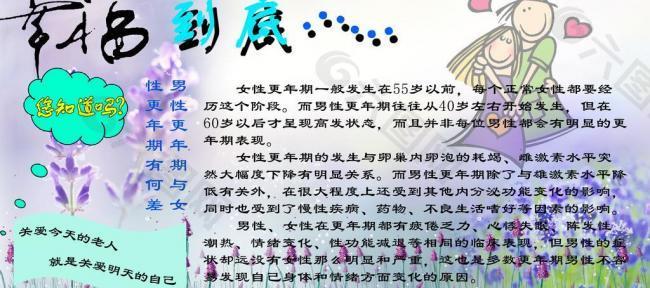 幸福到底
您知道吗?
男性更年期与女
性更年期有何差
女性更年期一般发生在55岁以前，每个正常女性都要经
历这个阶段。而男性更年期往往从40岁左右开始发生，但在
60岁以后才呈现高发状态，而且并非每位男性都会有明显的更
年期表现。
女性更年期的发生与卵巢内卵泡的耗竭、雌激素水平突
然大幅度下降有明显关系。而男性更年期除了与雄激素水平降
低有关外，在很大程度上还受到其他内分泌功能变化的影响，
同时也受到了慢性疾病、药物、不良生活嗜好等因素的影响。
男性、女性在更年期都有疲倦乏力、心悸失眠、阵发性
潮热、情绪变化、性功能减退等相同的临床表现，但男性的症
状却远没有女性那么明显和严重，这也是多数更年期男性不容
易发现自己身体和情绪方面变化的原因。
关爱今天的老人
就是关爱明天的自己